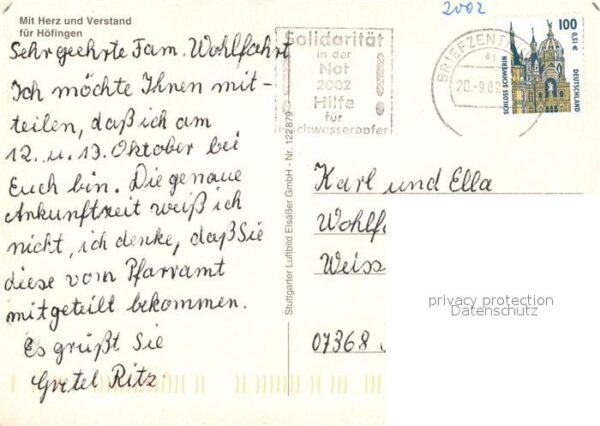 2002
Mit Herz und Verstand
für Höfingen
Sehr geehrte Fam. Wohlfahrt
Ich möchte Ihnen mit-
teilen, daß ich am
12. u. 13. Oktober bei
Euch bin. Die genaue
Ankunftzeit weiß ich
nicht, ich denke, daß Sie
diese vom Pfarramt
mitgeteilt bekommen.
Es grüßt Sie
Gretel Ritz.
Stuttgarter Luftbild Elsäßer GmbH - Nr. 122 879
Solidarität
in der
Not
2002
Hilfe
für
Hochwasseropfer
BRIEFZENT
20.-9.02
100
0,51 €
DEUTSCHLAND
SCHLOSS SCHWERIN
Karl und Ella
Wohlfa
Weiss
07368
privacy protection
Datenschutz